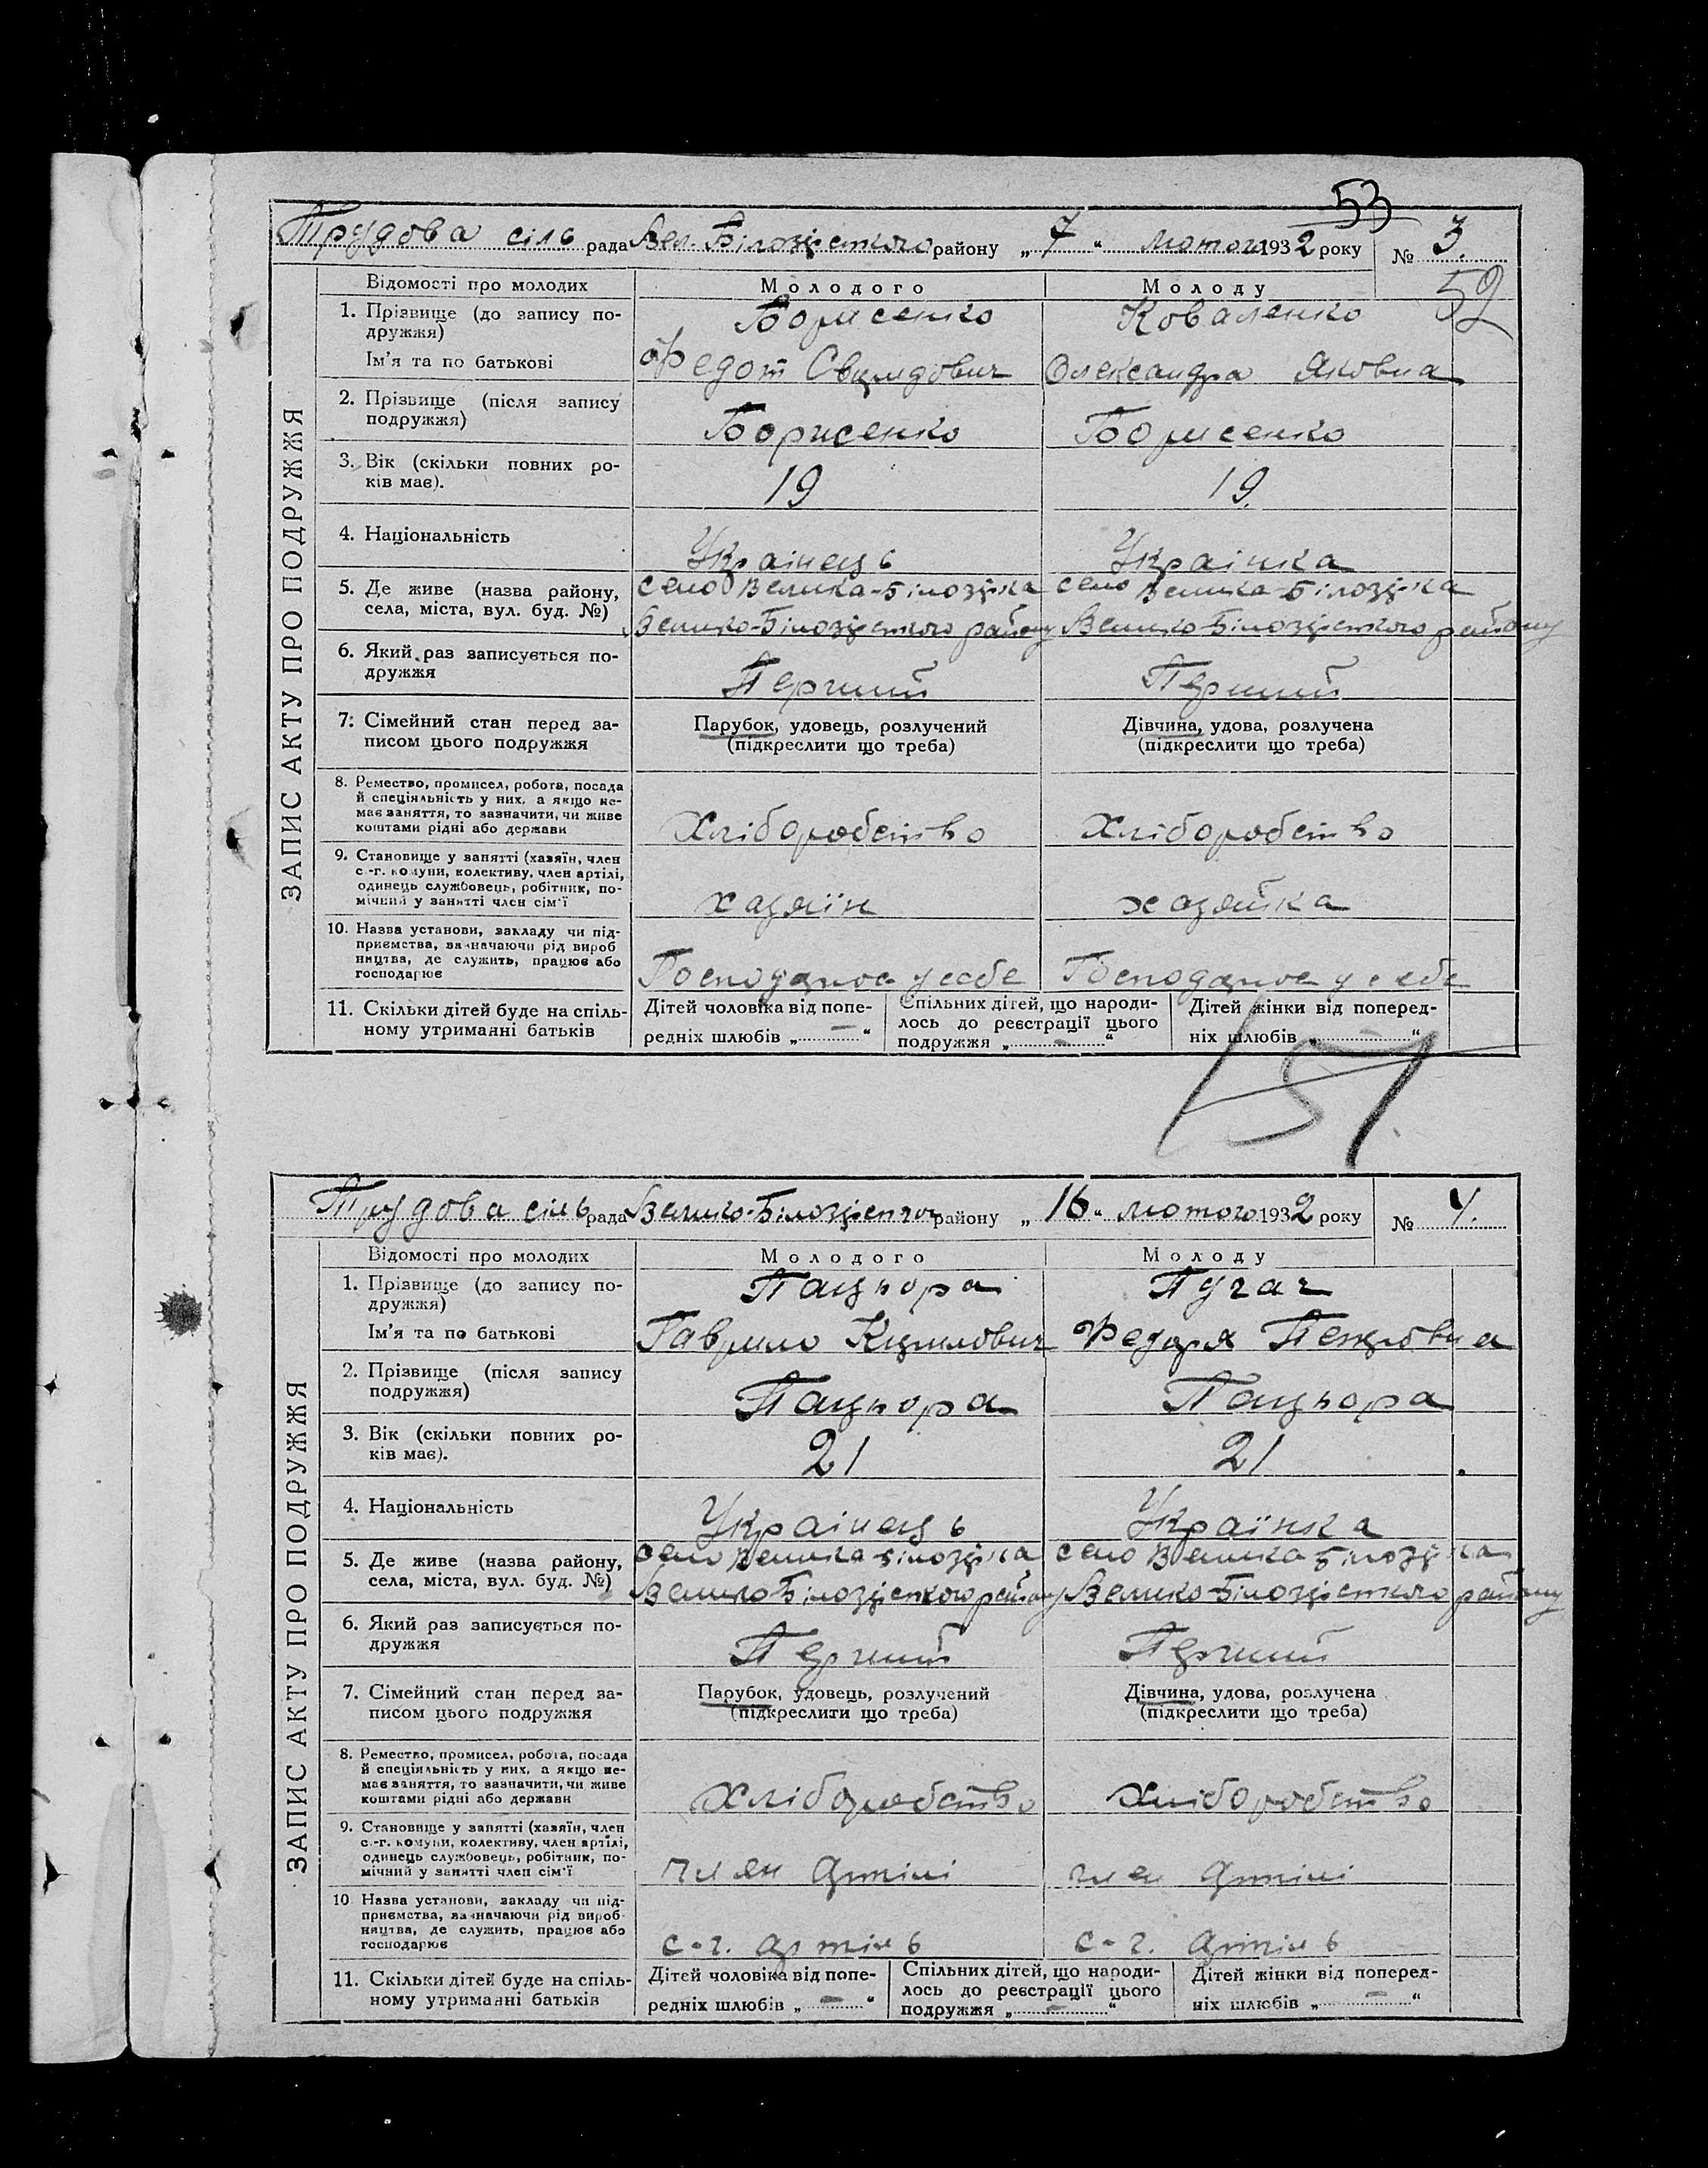 53
Трудова сіль рада Вел. Білозірського району „7“ лютого 1932 року № 3.
59
ЗАПИС АКТУ ПРО ПОДРУЖЖЯ
Відомості про молодих Молодого Молоду
1. Прізвище (до запису по-
дружжя) Борисенко Коваленко
Ім'я та по батькові Федот Свиридович Олександра Яковна
2. Прізвище (після запису
подружжя) Борисенко Борисенко
3. Вік (скільки повних ро-
ків має). 19 19.
4. Національність Українець Українка
5. Де живе (назва району, село Велика-Білозірка село Велика-Білозірка
села, міста, вул. буд. №) Велико-Білозірського району Велико-Білозірського району
6. Який раз записується по-
дружжя Перший Перший
7. Сімейний стан перед за- Парубок, удовець, розлучений Дівчина, удова, розлучена
писом цього подружжя (підкреслити що треба) (підкреслити що треба)
8. Ремество, промисел, робота, посада
й спеціяльність у них, а якщо не-
має заняття, то зазначити, чи живе
коштами рідні або держави Хліборобство Хліборобство
9. Становище у занятті (хазяїн, член
с.-г. комуни, колективу, член артілі,
одинець службовець, робітник, по-
мічний у занятті член сім'ї хазяїн хазяйка
10. Назва установи, закладу чи під-
приємства, зазначаючи рід вироб
ництва, де служить, працює або
господарює Господарює у себе Господарює у себе
11. Скільки дітей буде на спіль- Дітей чоловіка від попе- Спільних дітей, що народи- Дітей жінки від поперед-
ному утриманні батьків редніх шлюбів „—“ лось до реєстрації цього ніх шлюбів „“
подружжя „—“
Трудова сіль рада Велико-Білозірського району „16“ лютого 1932 року № 4.
ЗАПИС АКТУ ПРО ПОДРУЖЖЯ
Відомості про молодих Молодого Молоду
1. Прізвище (до запису по-
дружжя) Пацьора Пугач
Ім'я та по батькові Гаврило Кирилович Федоря Петровна
2. Прізвище (після запису
подружжя) Пацьора Пацьора
3. Вік (скільки повних ро-
ків має). 21 21
4. Національність Українець Українка
5. Де живе (назва району, село Велика-Білозірка село Велика Білозірка
села, міста, вул. буд. №) Велико-Білозірського району Велико-Білозірського району
6. Який раз записується по-
дружжя Перший Перший
7. Сімейний стан перед за- Парубок, удовець, розлучений Дівчина, удова, розлучена
писом цього подружжя (підкреслити що треба) (підкреслити що треба)
8. Ремество, промисел, робота, посада
й спеціяльність у них, а якщо не-
має заняття, то зазначити, чи живе
коштами рідні або держави Хліборобство Хліборобство
9. Становище у занятті (хазяїн, член
с.-г. комуни, колективу, член артілі,
одинець службовець, робітник, по-
мічний у занятті член сім'ї член артілі член артілі
10 Назва установи, закладу чи під-
приємства, зазначаючи рід вироб-
ництва, де служить, працює або
господарює с-г. артіль с-г. артіль
11. Скільки дітей буде на спіль- Дітей чоловіка від попе- Спільних дітей, що народи- Дітей жінки від поперед-
ному утриманні батьків редніх шлюбів „—“ лось до реєстрації цього ніх шлюбів „—“
подружжя „—“